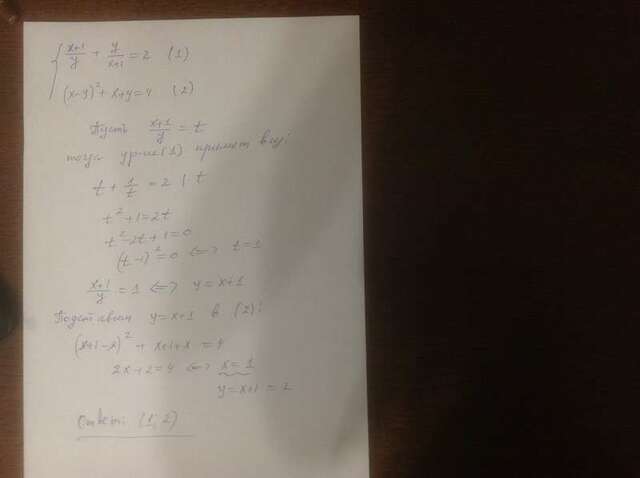 { (x+1)/y + y/(x+1) = 2 (1)
(x-y)² + x+y = 4 (2)
Пусть (x+1)/y = t
тогда ур-ие (1) примет вид:
t + 1/t = 2 | t
t² + 1 = 2t
t² - 2t + 1 = 0
(t-1)² = 0 <=> t = 1
(x+1)/y = 1 <=> y = x+1
Подставим y = x+1 в (2):
(x+1-x)² + x+1+x = 4
2x+2 = 4 <=> x = 1
y = x+1 = 2
Ответ: (1; 2)